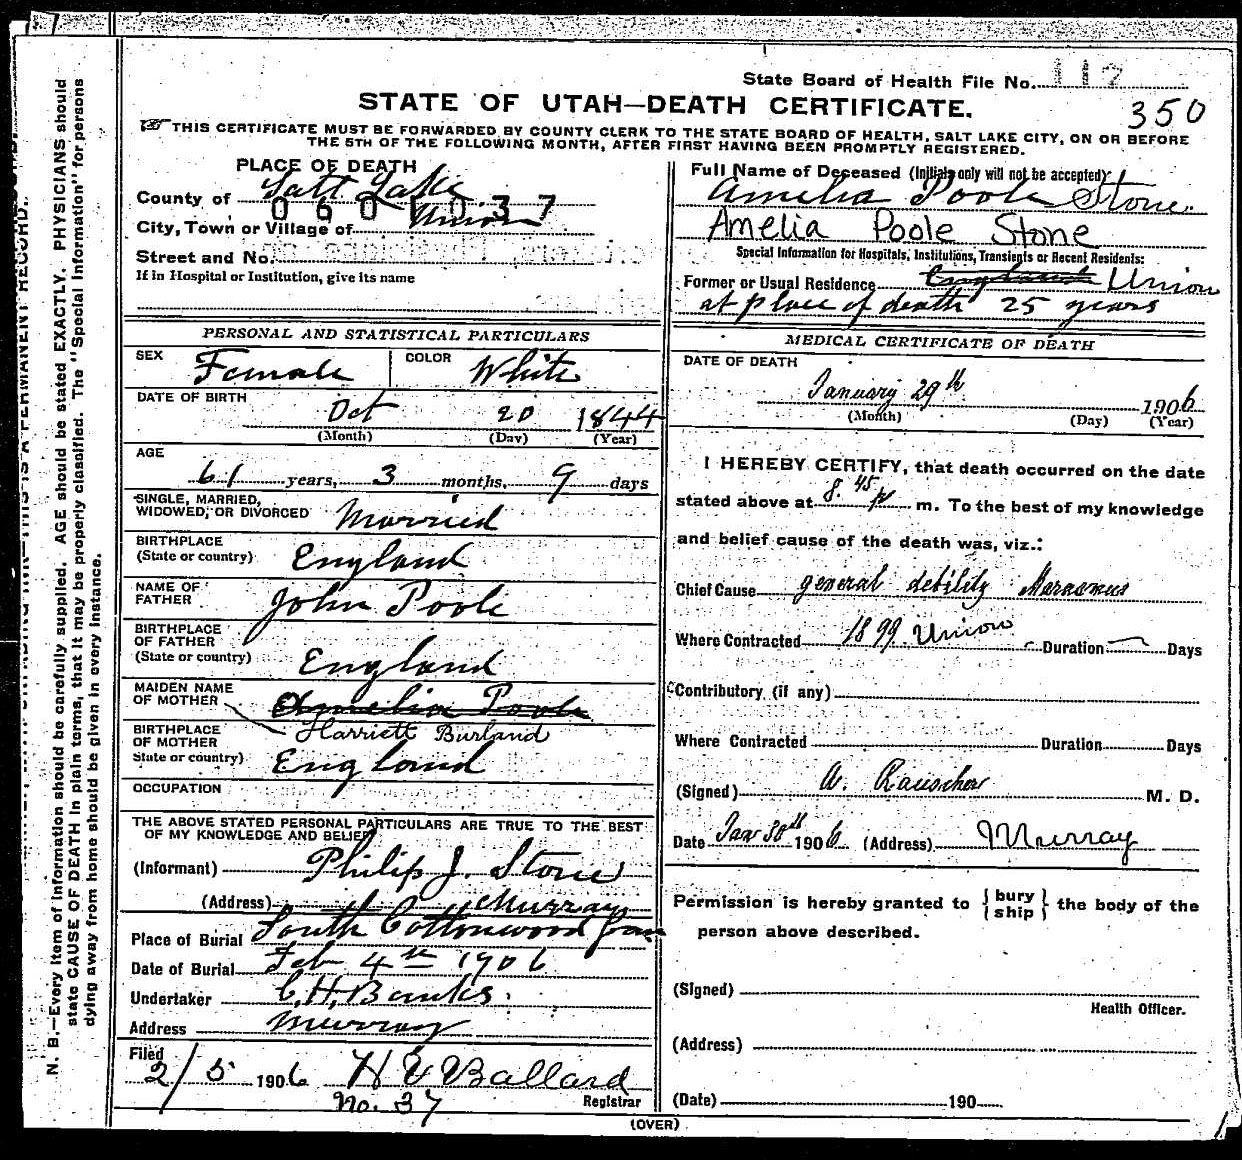 State Board of Health File No. 112
STATE OF UTAH—DEATH CERTIFICATE.
350
THIS CERTIFICATE MUST BE FORWARDED BY COUNTY CLERK TO THE STATE BOARD OF HEALTH, SALT LAKE CITY, ON OR BEFORE
THE 5TH OF THE FOLLOWING MONTH, AFTER FIRST HAVING BEEN PROMPTLY REGISTERED.
PLACE OF DEATH
County of Salt Lake
0601037
City, Town or Village of Union
Street and No.
If in Hospital or Institution, give its name
Full Name of Deceased (Initials only will not be accepted)
Amelia Poole Stone.
Amelia Poole Stone
Special Information for Hospitals, Institutions, Transients or Recent Residents:
Former or Usual Residence England Union
at place of death 25 years
PERSONAL AND STATISTICAL PARTICULARS
SEX Female COLOR White
DATE OF BIRTH
Oct 20 1844
(Month) (Day) (Year)
AGE
61 years, 3 months, 9 days
SINGLE, MARRIED,
WIDOWED, OR DIVORCED Married
BIRTHPLACE
(State or country) England
NAME OF
FATHER John Poole
BIRTHPLACE
OF FATHER
(State or country) England
MAIDEN NAME
OF MOTHER Amelia Poole
Harriett Burland
BIRTHPLACE
OF MOTHER
State or country) England
OCCUPATION
THE ABOVE STATED PERSONAL PARTICULARS ARE TRUE TO THE BEST
OF MY KNOWLEDGE AND BELIEF
(Informant) Philip J. Stone
(Address) Murray
Place of Burial South Cottonwood
Date of Burial Feb 4th 1906
Undertaker C.H. Banks.
Address Murray
Filed
2/5 1906 H E Ballard
No. 37 Registrar
MEDICAL CERTIFICATE OF DEATH
DATE OF DEATH
January 29th 1906
(Month) (Day) (Year)
I HEREBY CERTIFY, that death occurred on the date
stated above at 8.45 p m. To the best of my knowledge
and belief cause of the death was, viz.:
Chief Cause general debility Marasmus
Where Contracted 1899. Union Duration Days
Contributory (if any)
Where Contracted Duration Days
(Signed) A. Rauscher M. D.
Date Jan 30th 1906 (Address) Murray
Permission is hereby granted to { bury ship } the body of the
person above described.
(Signed)
Health Officer.
(Address)
(Date) 190
(OVER)
N. B.—Every item of information should be carefully supplied. AGE should be stated EXACTLY. PHYSICIANS should
state CAUSE OF DEATH in plain terms, that it may be properly classified. The "Special Information" for persons
dying away from home should be given in every instance.